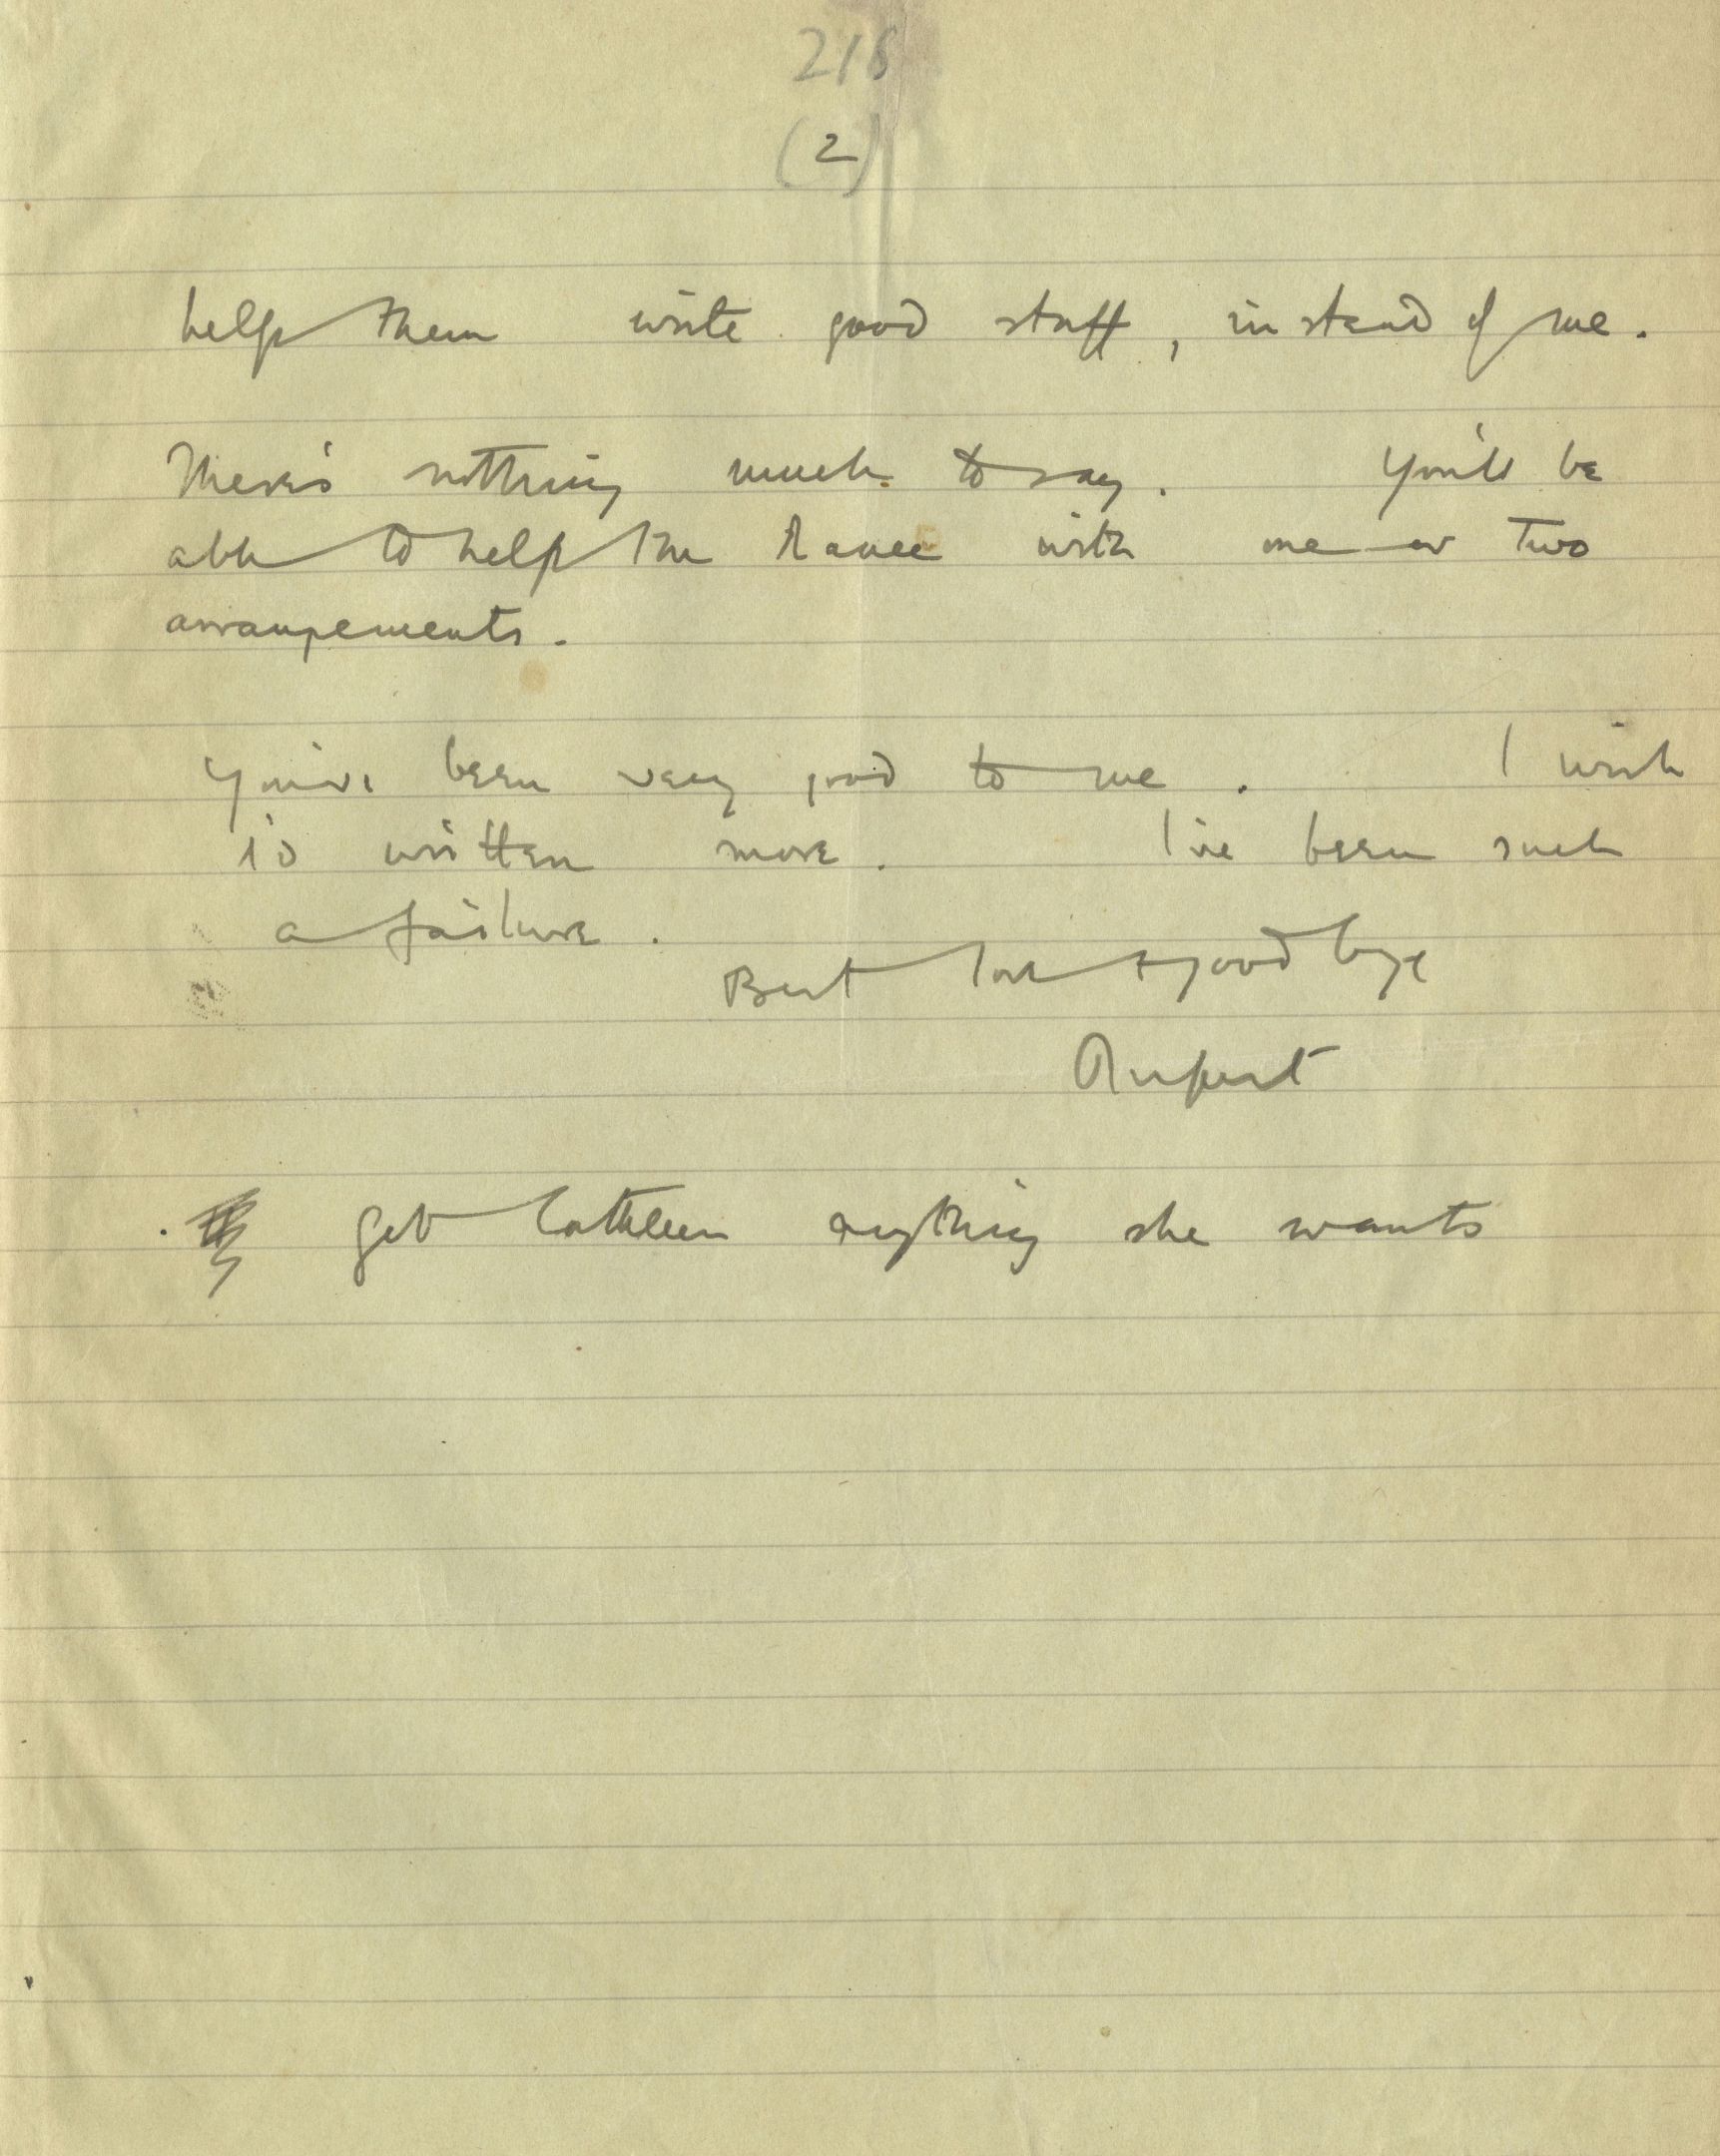 218
(2)
help them write good stuff, instead of me.
There's nothing much to say. You'll be
able to help the Ranee with one or two
arrangements.
You've been very good to me. I wish
I'd written more. I've been such
a failure.
Best love & goodbye
Rupert
Get Cathleen anything she wants